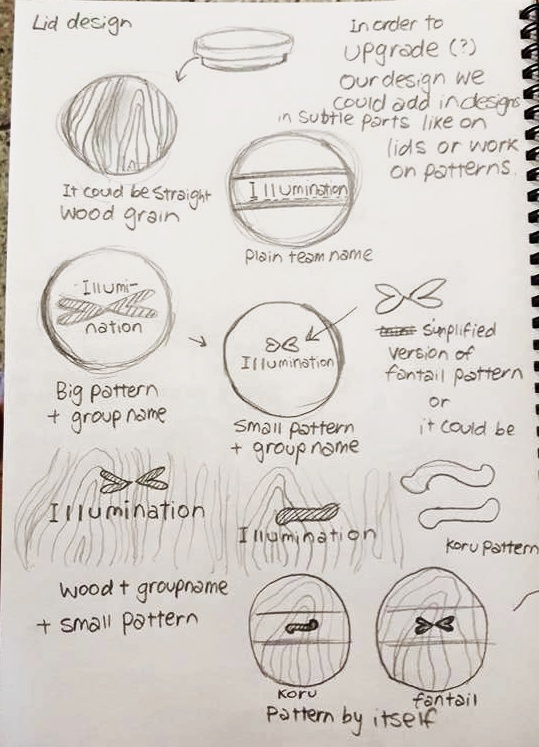 Lid design
In order to
upgrade (?)
our design we
could add in designs
in subtle parts like on
lids or work
on patterns.
It could be straight
wood grain
Illumination
Plain team name
Illumi-
nation
Big pattern
+ group name
Illumination
Small pattern
+ group name
simplified
version of
fantail pattern
or
it could be
Koru pattern
Illumination
Illumination
Wood + groupname
+ small pattern
Koru
fantail
Pattern by itself